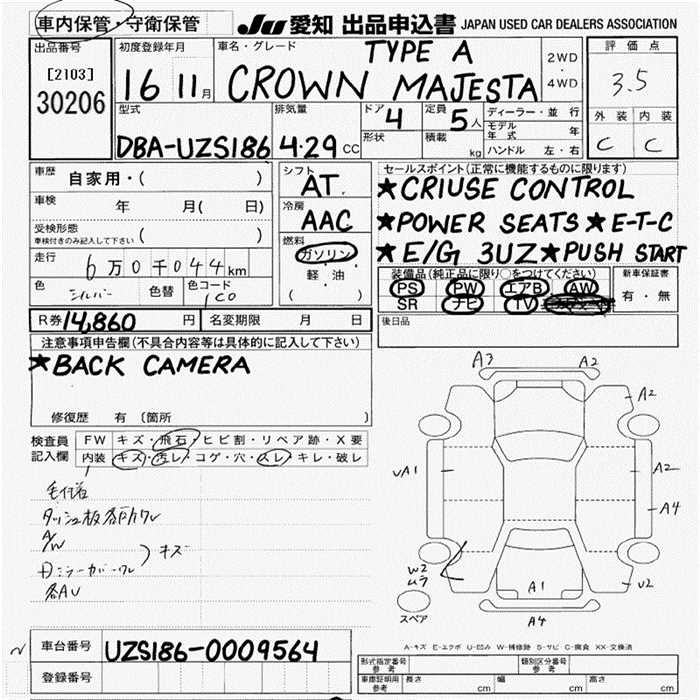 車内保管・守衛保管
JU 愛知 出品申込書 JAPAN USED CAR DEALERS ASSOCIATION
出品番号
[2103]
30206
初度登録年月
16 11月
車名・グレード
TYPE A
CROWN MAJESTA
2WD
・
4WD
評価点
3.5
外装 内装
C C
型式
DBA-UZS186
排気量
4.29 CC
ドア 4
形状
定員 5人
積載 kg
ディーラー・並行
モデル年式 年
ハンドル 左・右
車歴 自家用・( )
車検 年 月( 日)
受検形態
車検付きのみ記入して下さい ( )
走行 6万0千044km
色 シルバー 色替 色コード 1C0
シフト
AT
冷房
AAC
燃料
ガソリン
・
軽・油
( )
セールスポイント(正常に機能するものに限ります)
★CRIUSE CONTROL
★POWER SEATS ★E-T-C
★E/G 3UZ ★PUSH START
装備品(純正品に限り○をつけてください)
PS PW エアB AW
SR ナビ TV
新車保証書
有・無
R券 14,860 円 名変期限 月 日
後日品
注意事項申告欄(不具合内容等は具体的に記入して下さい)
★BACK CAMERA
修復歴 有 (箇所
検査員記入欄
FW キズ・飛石・ヒビ割・リペア跡・X要
内装 キズ・汚レ・コゲ・穴・スレ・キレ・破レ
A/W
キズ
A3 A2
A2
uA1 A2
A4
W2
A1 U2
A4
スペア
A-キズ E-エクボ U-凹み W-補修跡 S-サビ C-腐食 XX-交換済
車台番号 UZS186-0009564
登録番号
形式指定番号 参考
類別区分番号 参考
車庫証明用 参考 長さ cm 幅 cm 高さ cm